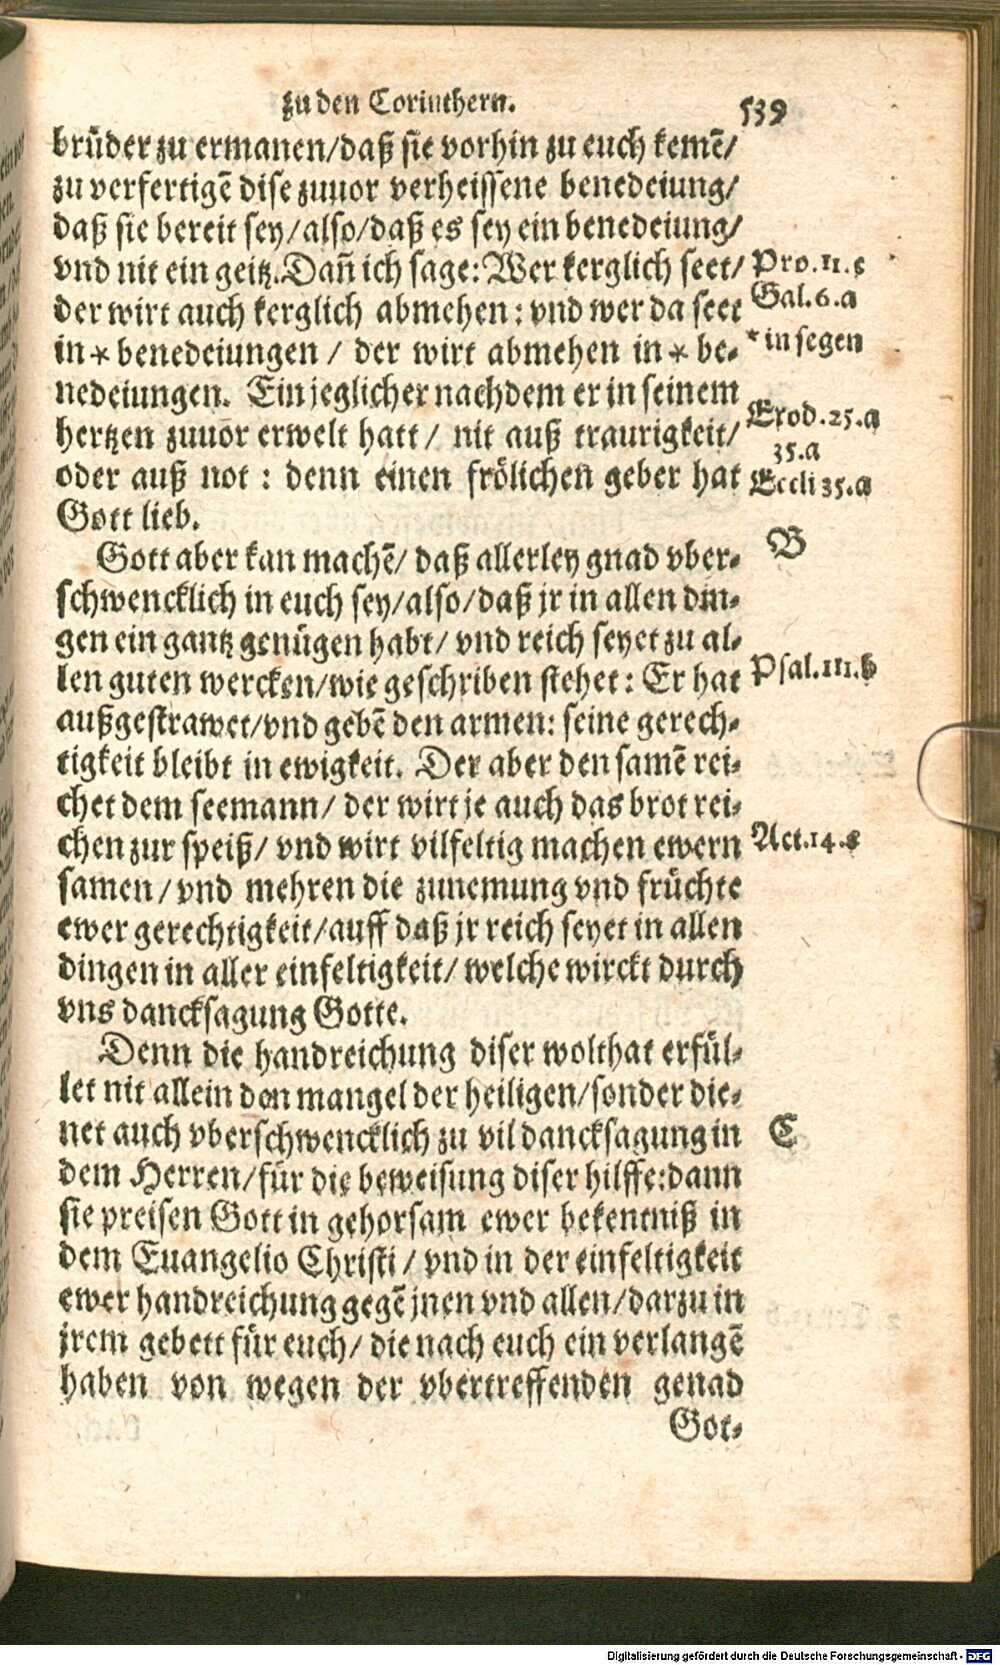 zu den Corinthern.
539
brüder zu ermanen/daß sie vorhin zu euch kemẽ/
zu verfertigẽ dise zuuor verheissene benedeiung/
daß sie bereit sey/also/daß es sey ein benedeiung/
vnd nit ein geitz. Dañ ich sage: Wer kerglich seet/
Pro.11.c
der wirt auch kerglich abmehen: vnd wer da seet
Gal.6.a
in * benedeiungen / der wirt abmehen in * be-
* in segen
nedeiungen. Ein jeglicher nachdem er in seinem
Exod.25.a
hertzen zuuor erwelt hatt/ nit auß traurigkeit/
35.a
oder auß not : denn einen frölichen geber hat
Eccli 35.a
Gott lieb.
B
Gott aber kan machẽ/ daß allerley gnad vber-
schwencklich in euch sey/also/daß jr in allen din-
gen ein gantz genügen habt/ vnd reich seyet zu al-
len guten wercken/wie geschriben stehet: Er hat
Psal.111.b
außgestrawet/vnd gebẽ den armen: seine gerech-
tigkeit bleibt in ewigkeit. Der aber den samẽ rei-
chet dem seemann/ der wirt je auch das brot rei-
chen zur speiß/ vnd wirt vilfeltig machen ewern
Act.14.c
samen/vnd mehren die zunemung vnd früchte
ewer gerechtigkeit/auff daß jr reich seyet in allen
dingen in aller einfeltigkeit/ welche wirckt durch
vns dancksagung Gotte.
Denn die handreichung diser wolthat erfül-
let nit allein den mangel der heiligen/sonder die-
net auch vberschwencklich zu vil dancksagung in
C
dem Herren/für die beweisung diser hilffe:dann
sie preisen Gott in gehorsam ewer bekentniß in
dem Euangelio Christi / vnd in der einfeltigkeit
ewer handreichung gegẽ jnen vnd allen/darzu in
jrem gebett für euch/ die nach euch ein verlangẽ
haben von wegen der vbertreffenden genad
Got-
Digitalisierung gefördert durch die Deutsche Forschungsgemeinschaft - DFG